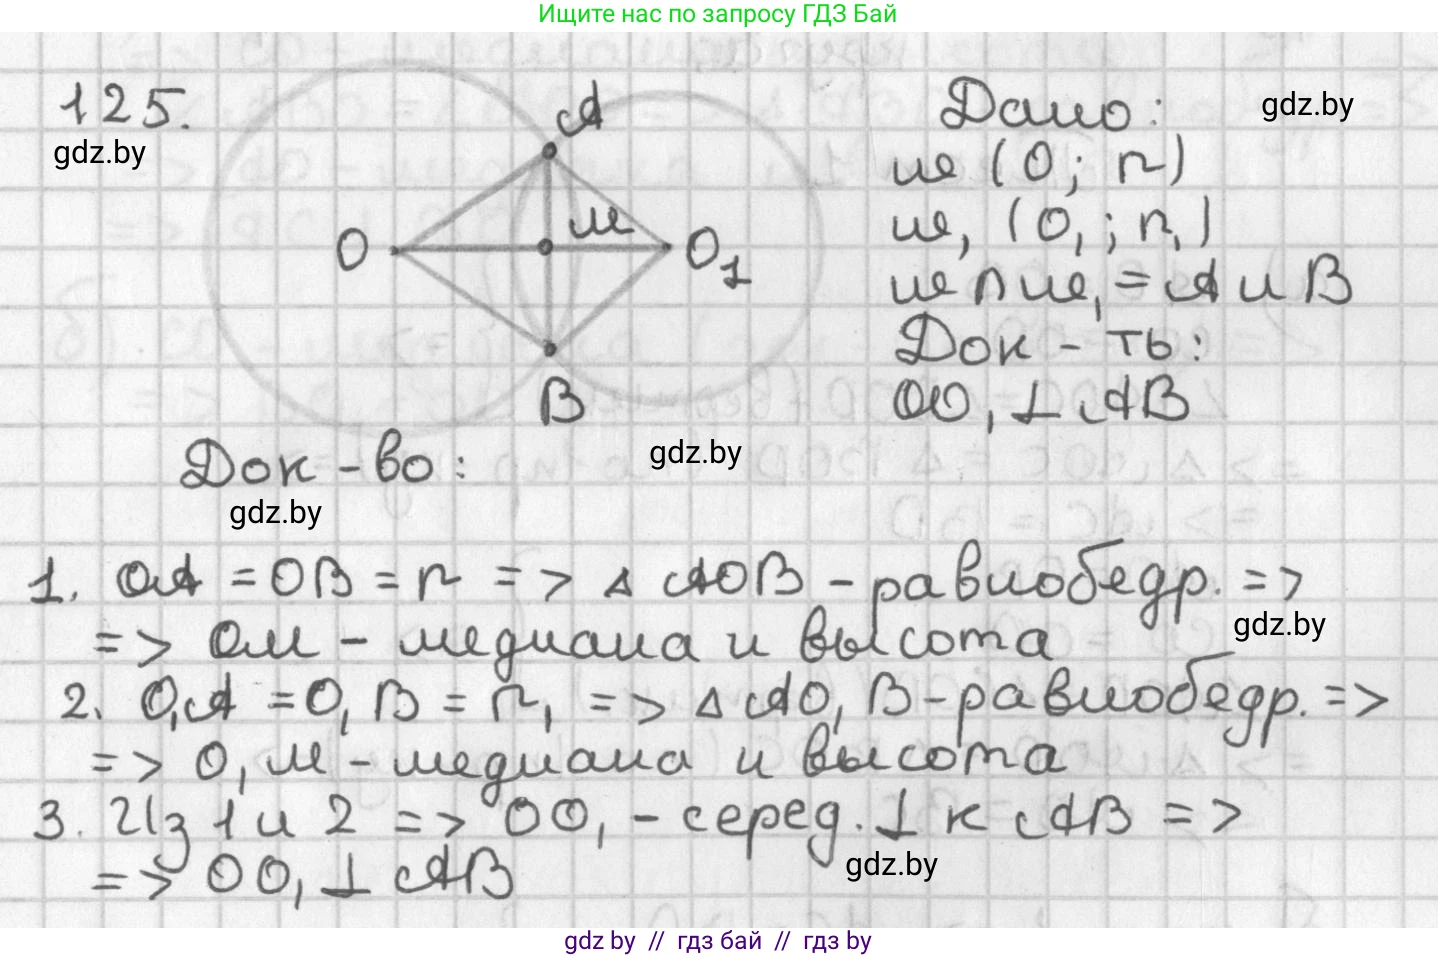 Ищите нас по запросу ГДЗ Бай
125.
gdz.by
A
O
M
O₁
B
Дано:
gdz.by
ω (O; r)
ω₁ (O₁; r₁)
ω ∩ ω₁ = A и B
Док-ть:
OO₁ ⊥ AB
gdz.by
Док-во:
gdz.by
1. OA = OB = r => △ AOB - равнобедр. =>
=> OM - медиана и высота
gdz.by
2. O₁A = O₁B = r₁ => △ AO₁B - равнобедр. =>
=> O₁M - медиана и высота
3. Из 1 и 2 => OO₁ - серед. ⊥ к AB =>
=> OO₁ ⊥ AB
gdz.by
gdz.by // гдз бай // гдз by